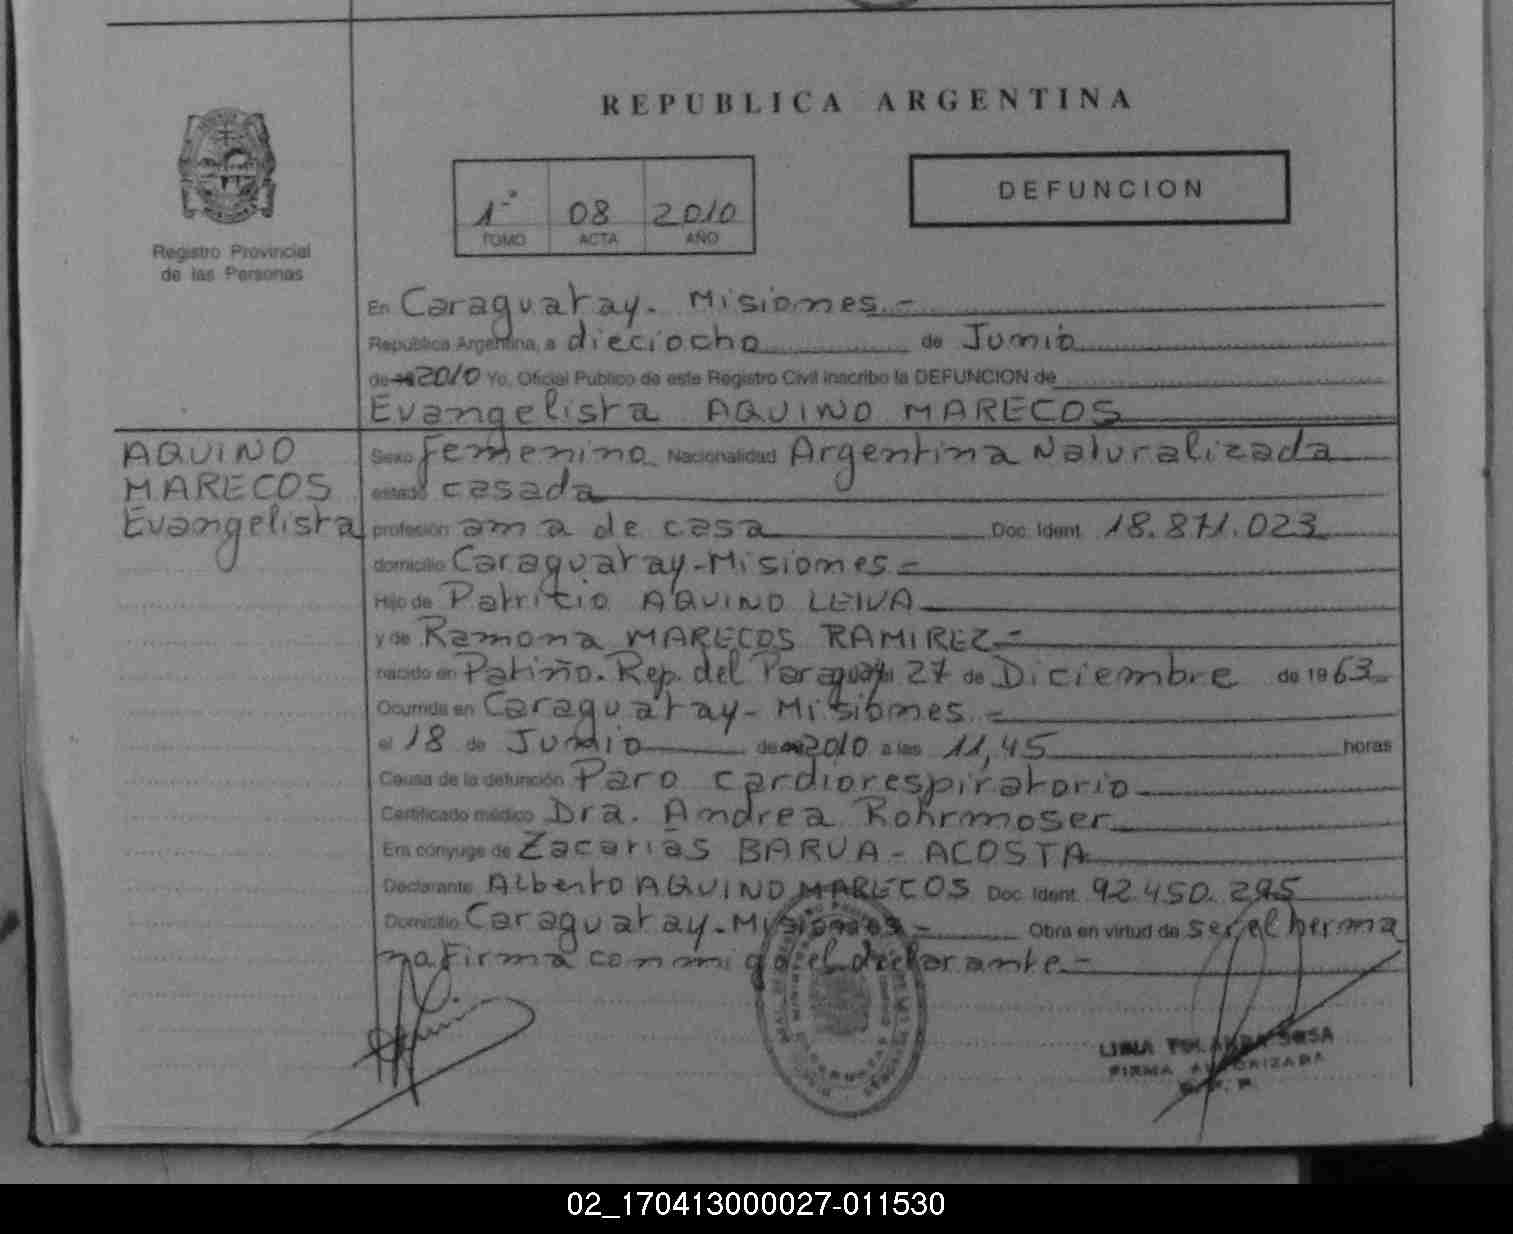 REPUBLICA ARGENTINA
1-º 08 2010
TOMO ACTA AÑO
DEFUNCION
Registro Provincial
de las Personas
En Caraguatay. Misiones.-
República Argentina, a dieciocho de Junio
de 2010 Yo, Oficial Público de este Registro Civil inscribo la DEFUNCION de
Evangelista AQUINO MARECOS
AQUINO
MARECOS
Evangelista
Sexo femenino Nacionalidad Argentina Naturalizada
estado casada
profesión ama de casa Doc. Ident. 18.871.023
domicilio Caraguatay-Misiones.-
Hijo de Patricio AQUINO LEIVA
y de Ramona MARECOS RAMIREZ-
nacido en Patiño. Rep. del Paraguay el 27 de Diciembre de 1963
Ocurrida en Caraguatay-Misiones.-
el 18 de Junio de 2010 a las 11,45 horas
Causa de la defunción Paro cardiorespiratorio
Certificado médico Dra. Andrea Rohrmoser
Era cónyuge de Zacarías BARUA-ACOSTA
Declarante Alberto AQUINO MARECOS Doc. Ident. 92.450.295
Domicilio Caraguatay-Misiones- Obra en virtud de ser el herma
no firma conmigo el declarante.-
SOSA
FIRMA AUTORIZADA
02_170413000027-011530